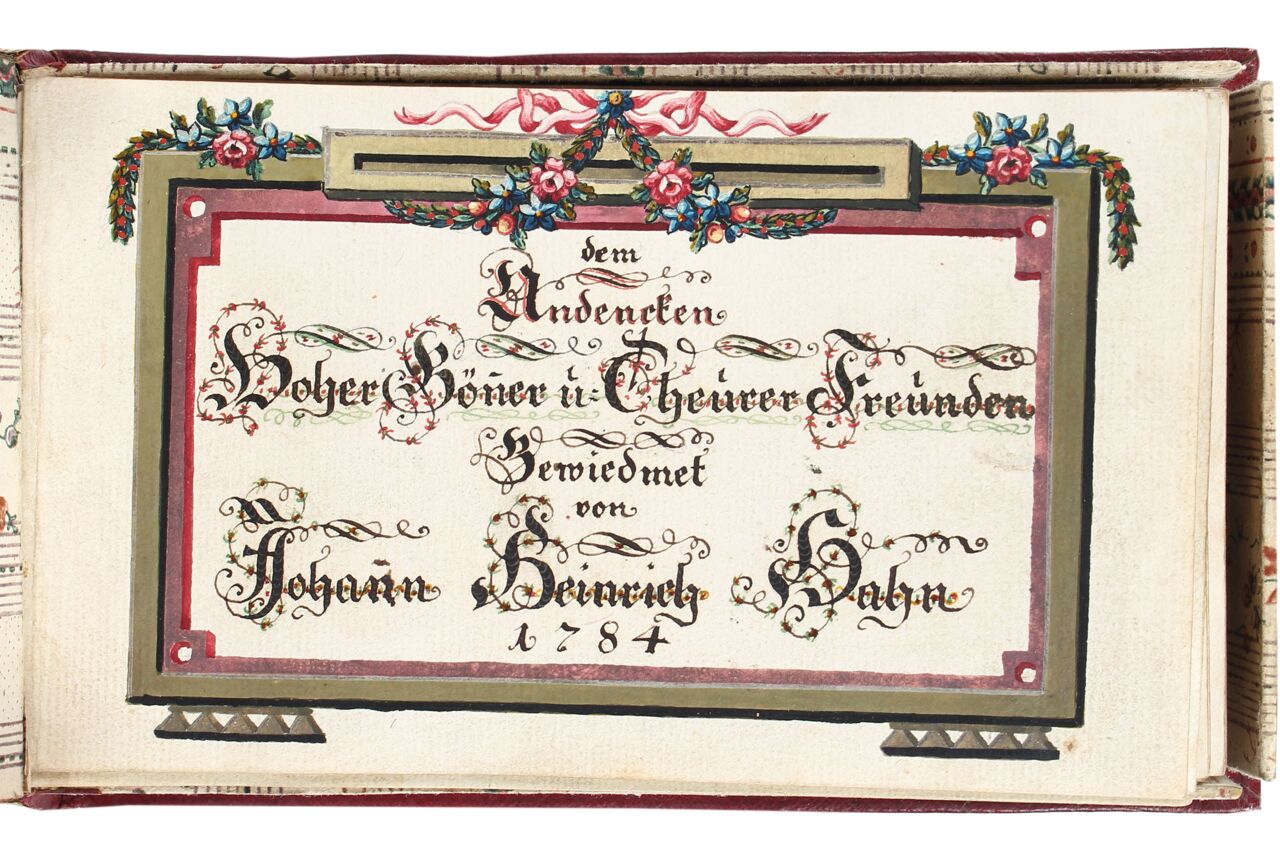 dem
Andencken
Hoher Göñer ŭ: Theŭrer Freŭnden
Gewiedmet
von
Johañn Heinrich Hahn
1784